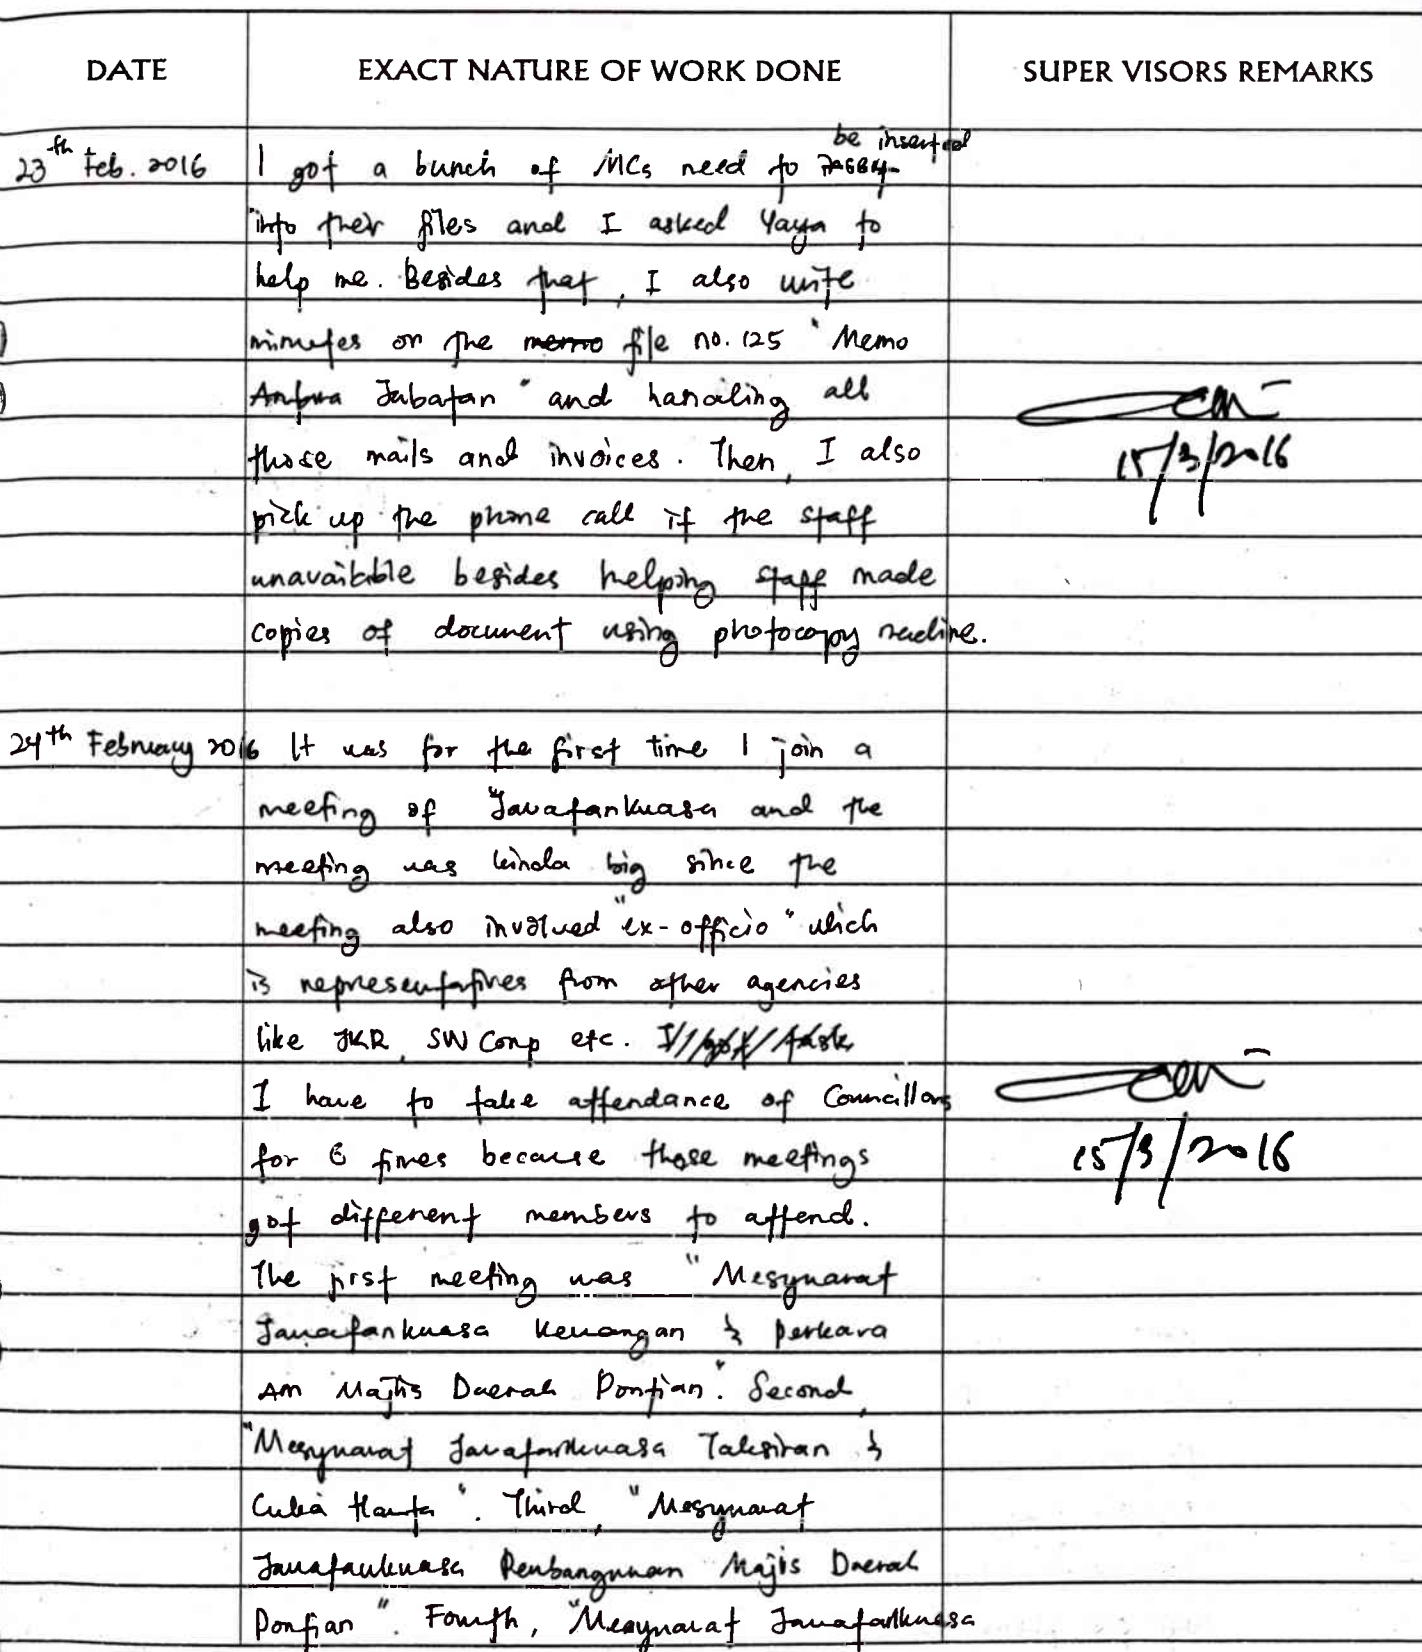 DATE EXACT NATURE OF WORK DONE SUPER VISORS REMARKS
be inserted
23th Feb. 2016 I got a bunch of MCs need to
into their files and I asked Yaya to
help me. Besides that, I also write
minutes on the memo file no. 125 "Memo
Antara Jabatan" and handling all
those mails and invoices. Then, I also
15/3/2016
pick up the phone call if the staff
unavailable besides helping staff made
copies of document using photocopy machine.
24th February 2016 It was for the first time I join a
meeting of "Jawatankuasa and the
meeting was kinda big since the
meeting also involved "ex-officio" which
is representatives from other agencies
like JKR, SW Corp etc. I got task
I have to take attendance of Councillors
for 6 times because those meetings
15/3/2016
got different members to attend.
The first meeting was "Mesyuarat
Jawatankuasa Kewangan & Perkara
Am Majlis Daerah Pontian". Second,
"Mesyuarat Jawatankuasa Taksiran &
Cukai Harta". Third, "Mesyuarat
Jawatankuasa Pembangunan Majlis Daerah
Pontian". Fourth, "Mesyuarat Jawatankuasa